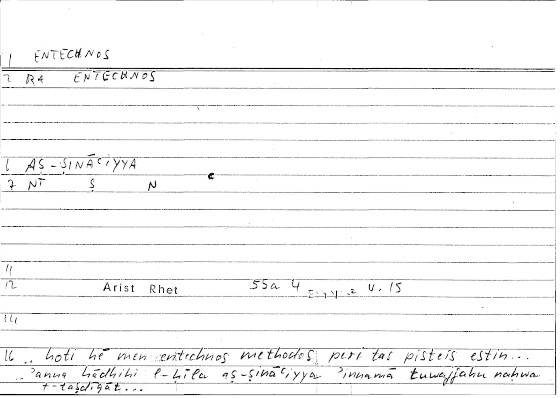 1 ENTECHNOS
2 RA ENTECHNOS
6 AṢ-ṢINĀʿIYYA
7 NT Ṣ N ʿ
11
12 Arist Rhet 55a 4
14
16 .. hoti hē men entechnos methodos peri tas pisteis estin...
.. ʾanna hādhihi l-ḥīla aṣ-ṣināʿiyya ʾinnamā tuwajjahu naḥwa
t-taṣdīqāt...